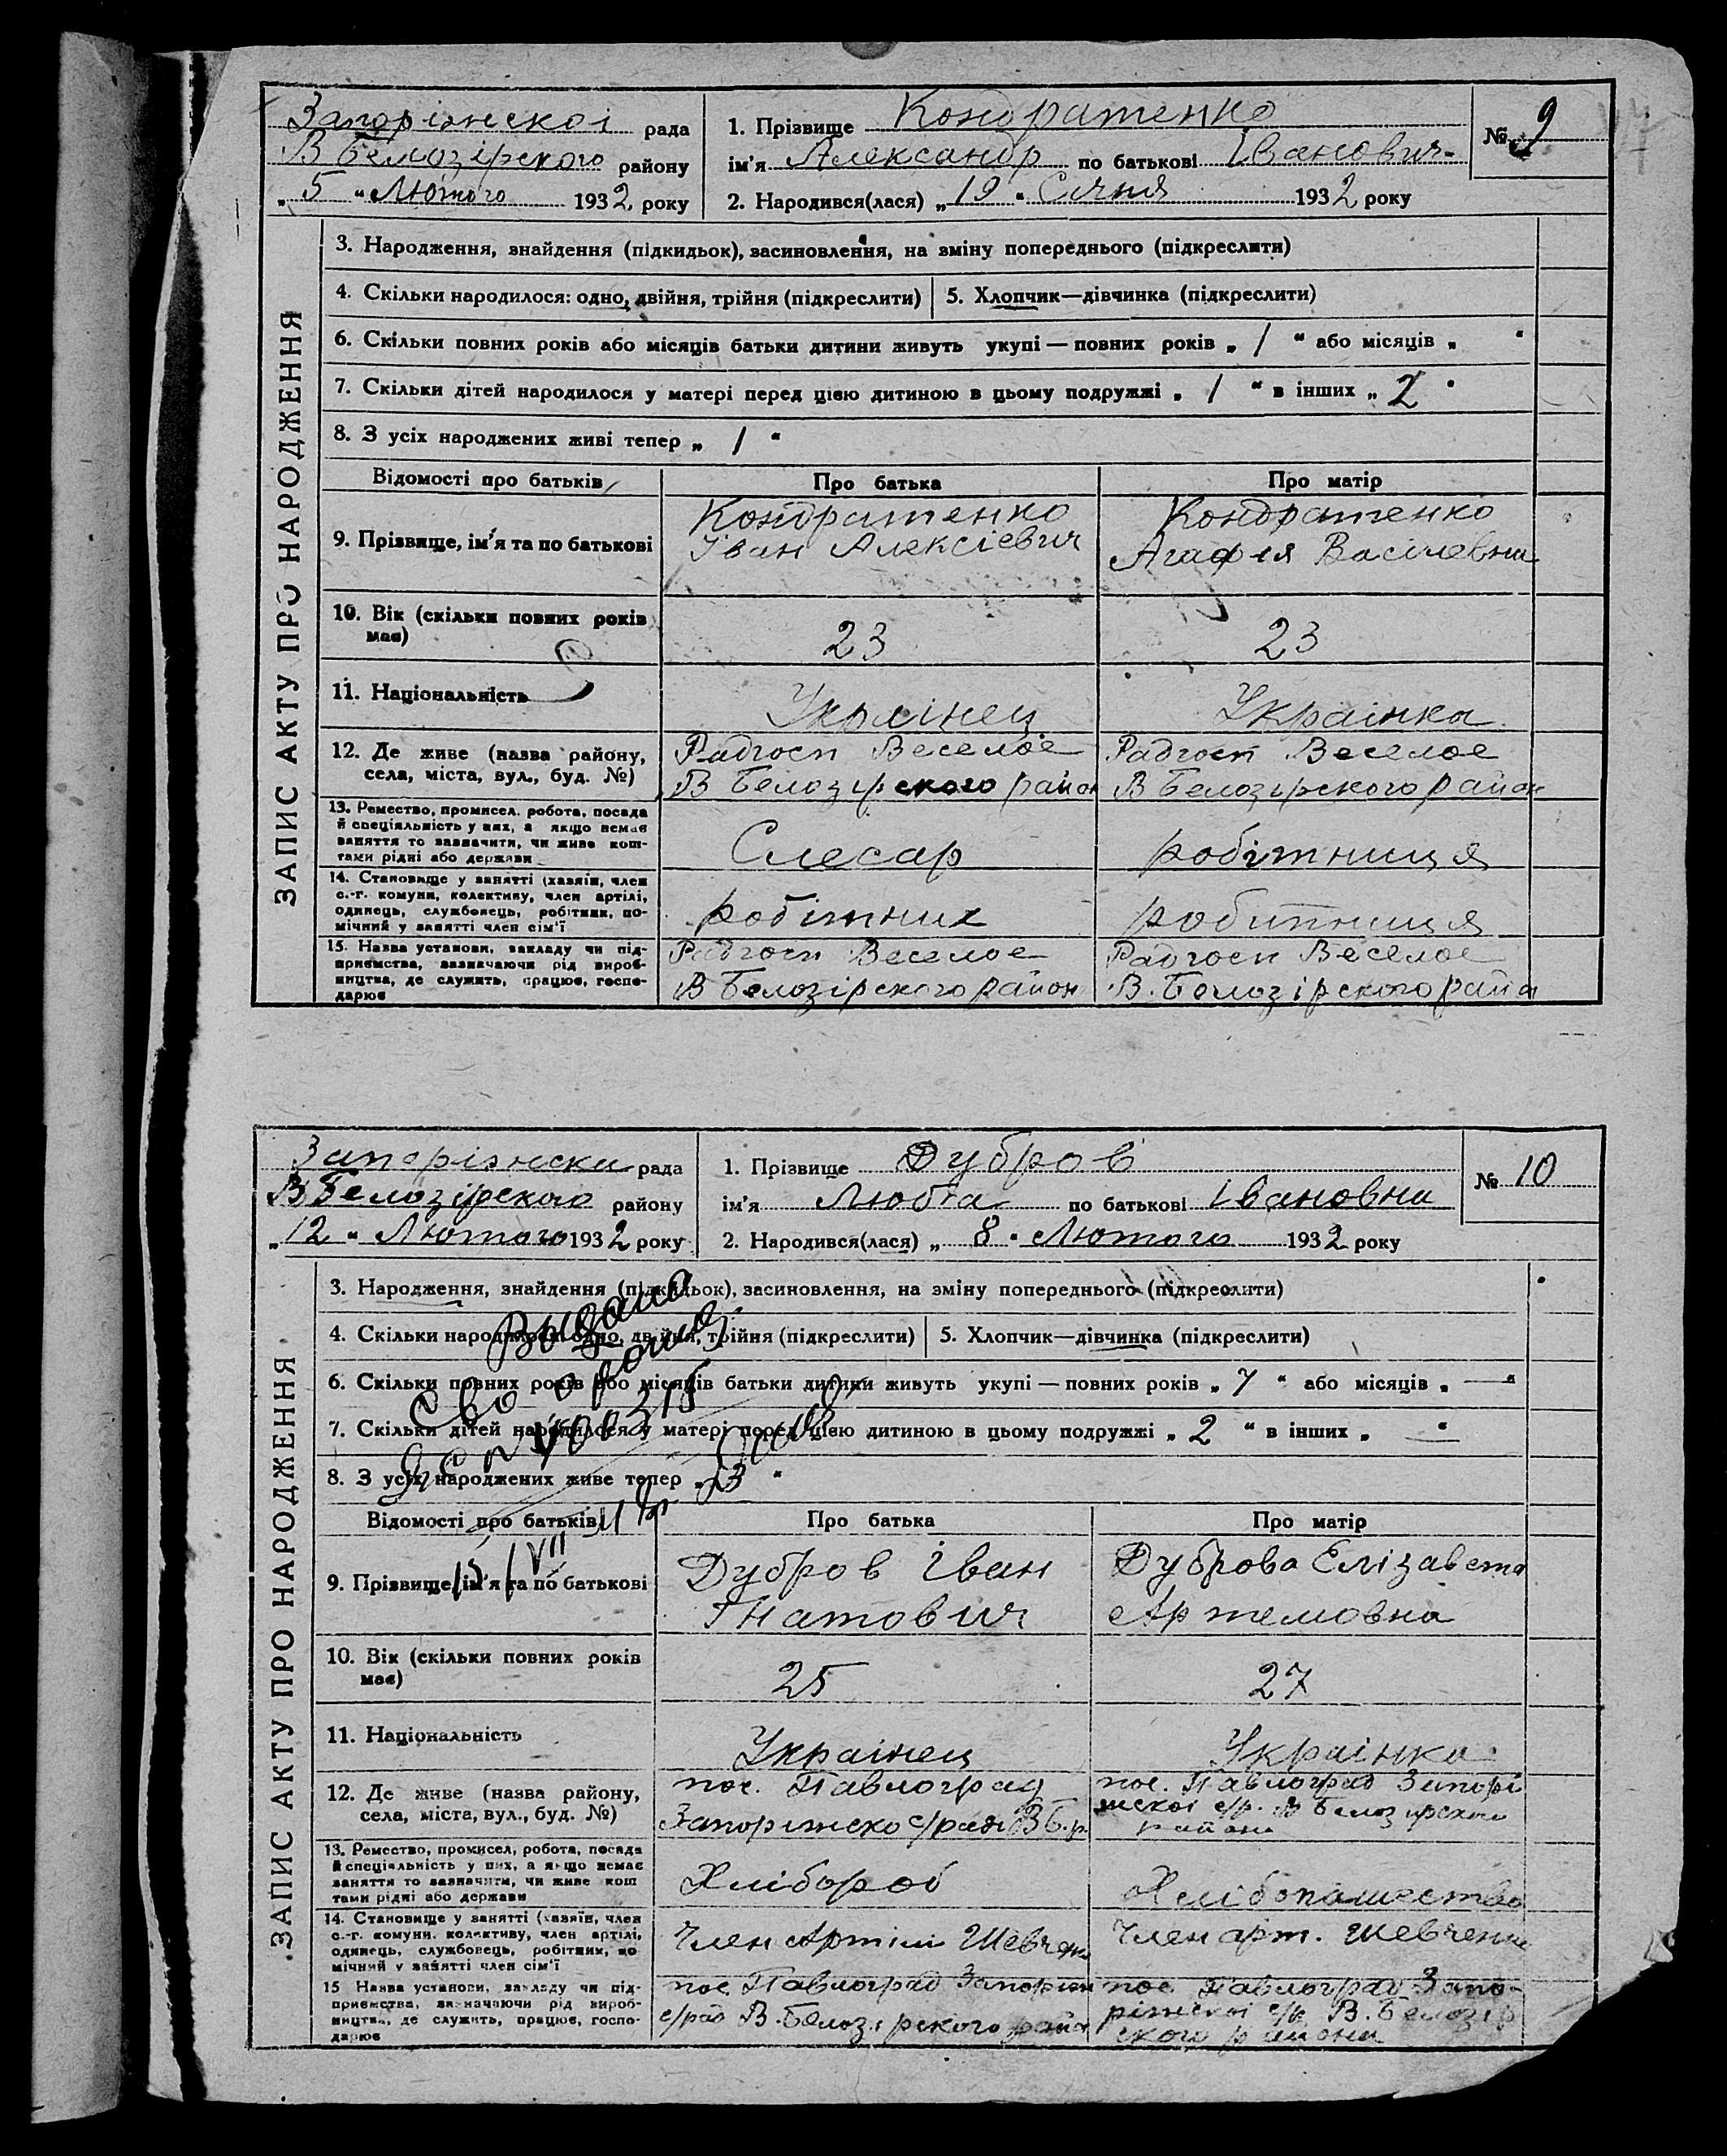 ЗАПИС АКТУ ПРО НАРОДЖЕННЯ
Запоріжскоі рада
В Белозірского району
„ 5 “ Лютого 1932 року
1. Прізвище Кондратенко
ім'я Александр по батькові Іванович
2. Народився(лася) „ 19 “ Січня 1932 року
№ 9
3. Народження, знайдення (підкидьок), засиновлення, на зміну попереднього (підкреслити)
4. Скільки народилося: одно, двійня, трійня (підкреслити)
5. Хлопчик—дівчинка (підкреслити)
6. Скільки повних років або місяців батьки дитини живуть укупі — повних років „ 1 “ або місяців „ “
7. Скільки дітей народилося у матері перед цією дитиною в цьому подружжі „ 1 “ в інших „ 2 “
8. З усіх народжених живі тепер „ 1 “
Відомості про батьків
Про батька
Про матір
9. Прізвище, ім'я та по батькові
Кондратенко
Іван Алексіевич
Кондратенко
Агафія Васілевна
10. Вік (скільки повних років
має)
23
23
11. Національність
Украінец
Украінка
12. Де живе (назва району,
села, міста, вул., буд. №)
Радгосп Веселое
В Белозірского район
Радгосп Веселое
В Белозірского район
13. Ремество, промисел, робота, посада
й спеціяльність у них, а якщо немає
заняття то зазначити, чи живе кош-
тами рідні або держави
Слесар
робітниця
14. Становище у занятті (хазяїн, член
с.-г. комуни, колективу, член артілі,
одинець, службовець, робітник, по-
мічний у занятті член сім'ї
робітник
робітниця
15. Назва установи, закладу чи під-
приємства, зазначаючи рід вироб-
ництва, де служить, працює, госпо-
дарює
Радгосп Веселое
В Белозірского район
Радгосп Веселое
В. Белозірского райо
ЗАПИС АКТУ ПРО НАРОДЖЕННЯ
Запоріжска рада
В Белозірского району
„ 12 “ Лютого 1932 року
1. Прізвище Дубров
ім'я Люба по батькові Івановна
2. Народився(лася) „ 8 “ Лютого 1932 року
№ 10
3. Народження, знайдення (підкидьок), засиновлення, на зміну попереднього (підкреслити)
4. Скільки народилося: одно, двійня, трійня (підкреслити)
5. Хлопчик—дівчинка (підкреслити)
6. Скільки повних років або місяців батьки дитини живуть укупі — повних років „ 7 “ або місяців „ — “
7. Скільки дітей народилося у матері перед цією дитиною в цьому подружжі „ 2 “ в інших „ — “
8. З усіх народжених живе тепер „ 3 “
Выдано
Сво о рожд
15/VII
Відомості про батьків
Про батька
Про матір
9. Прізвище, ім'я та по батькові
Дубров Іван
Гнатович
Дуброва Елізавета
Артемовна
10. Вік (скільки повних років
має)
25
27
11. Національність
Украінец
Украінка
12. Де живе (назва району,
села, міста, вул., буд. №)
пос. Павлоград
Запоріжско с/ради В Б. р.
пос. Павлоград Запорі
жскоі с/р. В Белозірского
району
13. Ремество, промисел, робота, посада
й спеціяльність у них, а якщо немає
заняття то зазначити, чи живе кош
тами рідні або держави
Хлібороб
14. Становище у занятті (хазяїн, член
с.-г. комуни, колективу, член артілі,
одинець, службовець, робітник, по
мічний у занятті член сім'ї
Член Артіли Шевченк
Член арт. Шевченка
15 Назва установи, закладу чи під-
приємства, зазначаючи рід вироб-
ництва, де служить, працює, госпо-
дарює
пос. Павлоград Запоріж
с/рад В. Белозірского райо
пос. Павлоград Запо-
ріжскоі с/р. В. Белозір
ского району